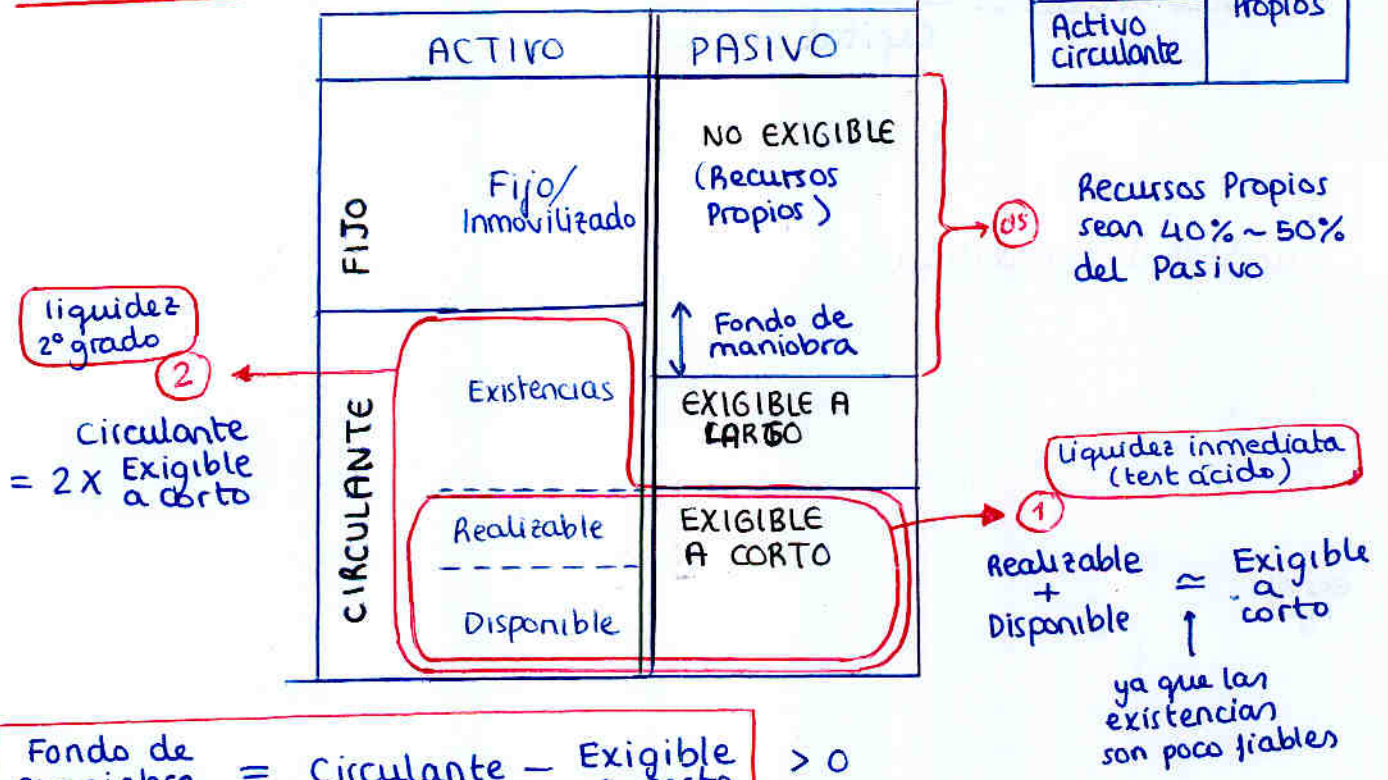 Activo
circulante
Propios
ACTIVO
PASIVO
FIJO
Fijo/
Inmovilizado
NO EXIGIBLE
(Recursos
Propios)
Recursos Propios
sean 40% ~ 50%
del Pasivo
Fondo de
maniobra
liquidez
2º grado
2
Circulante
= 2 x Exigible
a corto
CIRCULANTE
Existencias
EXIGIBLE A
LARGO
Realizable
Disponible
EXIGIBLE
A CORTO
Liquidez inmediata
(test ácido)
1
Realizable
+
Disponible
≃
Exigible
a
corto
ya que las
existencias
son poco fiables
Fondo de
maniobra
= Circulante - Exigible
a corto
> 0